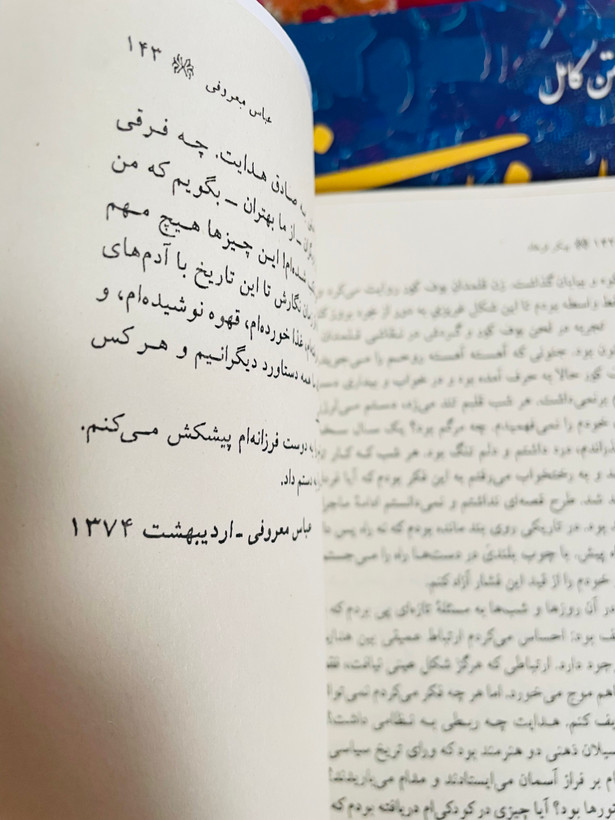 عباس معروفی ۱۴۳
صادق هدایت. چه فرقی
از ما بهتران - بگویم که من
شده‌ام! این چیزها هیچ مهم
نگارش تا این تاریخ با آدم‌های
غذا خورده‌ام، قهوه نوشیده‌ام، و
همه دستاورد دیگرانیم و هر کس
به دوست فرزانه‌ام پیشکش می‌کنم.
دستم داد.
عباس معروفی - اردیبهشت ۱۳۷۴
متن کامل
۱۴۲
و بیابان گذاشت. زن قلمدان بوف کور روایت می‌کرد و
واسطه بودم تا این شکل غریزی به دور از خرد بروز کند
تجربه در لحن بوف کور و گردش در نقاشی قلمدان
بود. جنونی که آهسته آهسته روحم را می‌جوید
کور حالا به حرف آمده بود و در خواب و بیداری
برنمی‌داشت. هر شب قلبم تند می‌زد، دستم می‌لرزید
خودم را نمی‌فهمیدم. چه مرگم بود؟ یک سال
گذراندم، درد داشتم و دلم تنگ بود. هر شب که کار
و به رختخواب می‌رفتم به این فکر بودم که آیا
شد. طرح قصه‌ای نداشتم و نمی‌دانستم ادامهٔ ماجرا
بود. در تاریکی روی بند مانده بودم که نه راه پس
پیش. با چوب بلندی در دست‌ها راه را می‌جستم
خودم را از قید این فشار آزاد کنم.
در آن روزها و شب‌ها به مسئلهٔ تازه‌ای پی بردم که
بود: احساس می‌کردم ارتباط عمیقی بین
وجود دارد. ارتباطی که هرگز شکل عینی نیافت،
هم موج می‌خورد. اما هر چه فکر می‌کردم
کنم. هدایت چه ربطی به نظامی داشت؟
سیلان ذهنی دو هنرمند بود که ورای تاریخ سیاسی
بر فراز آسمان می‌ایستادند و مدام می‌باریدند؟
بود؟ آیا چیزی در کودکی‌ام دریافته بودم که